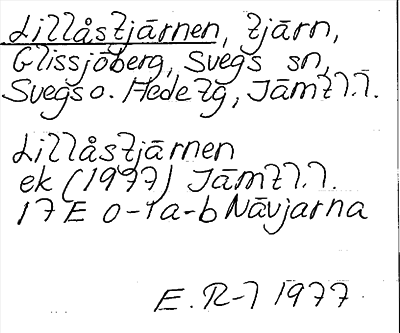 Lillåstjärnen, tjärn,
Glissjöberg, Svegs sn,
Svegs o. Hede tg, Jämtl.l.
Lillåstjärnen
ek (1977) Jämtl.l.
17E 0-1a-b Nävjarna
E.R-l 1977